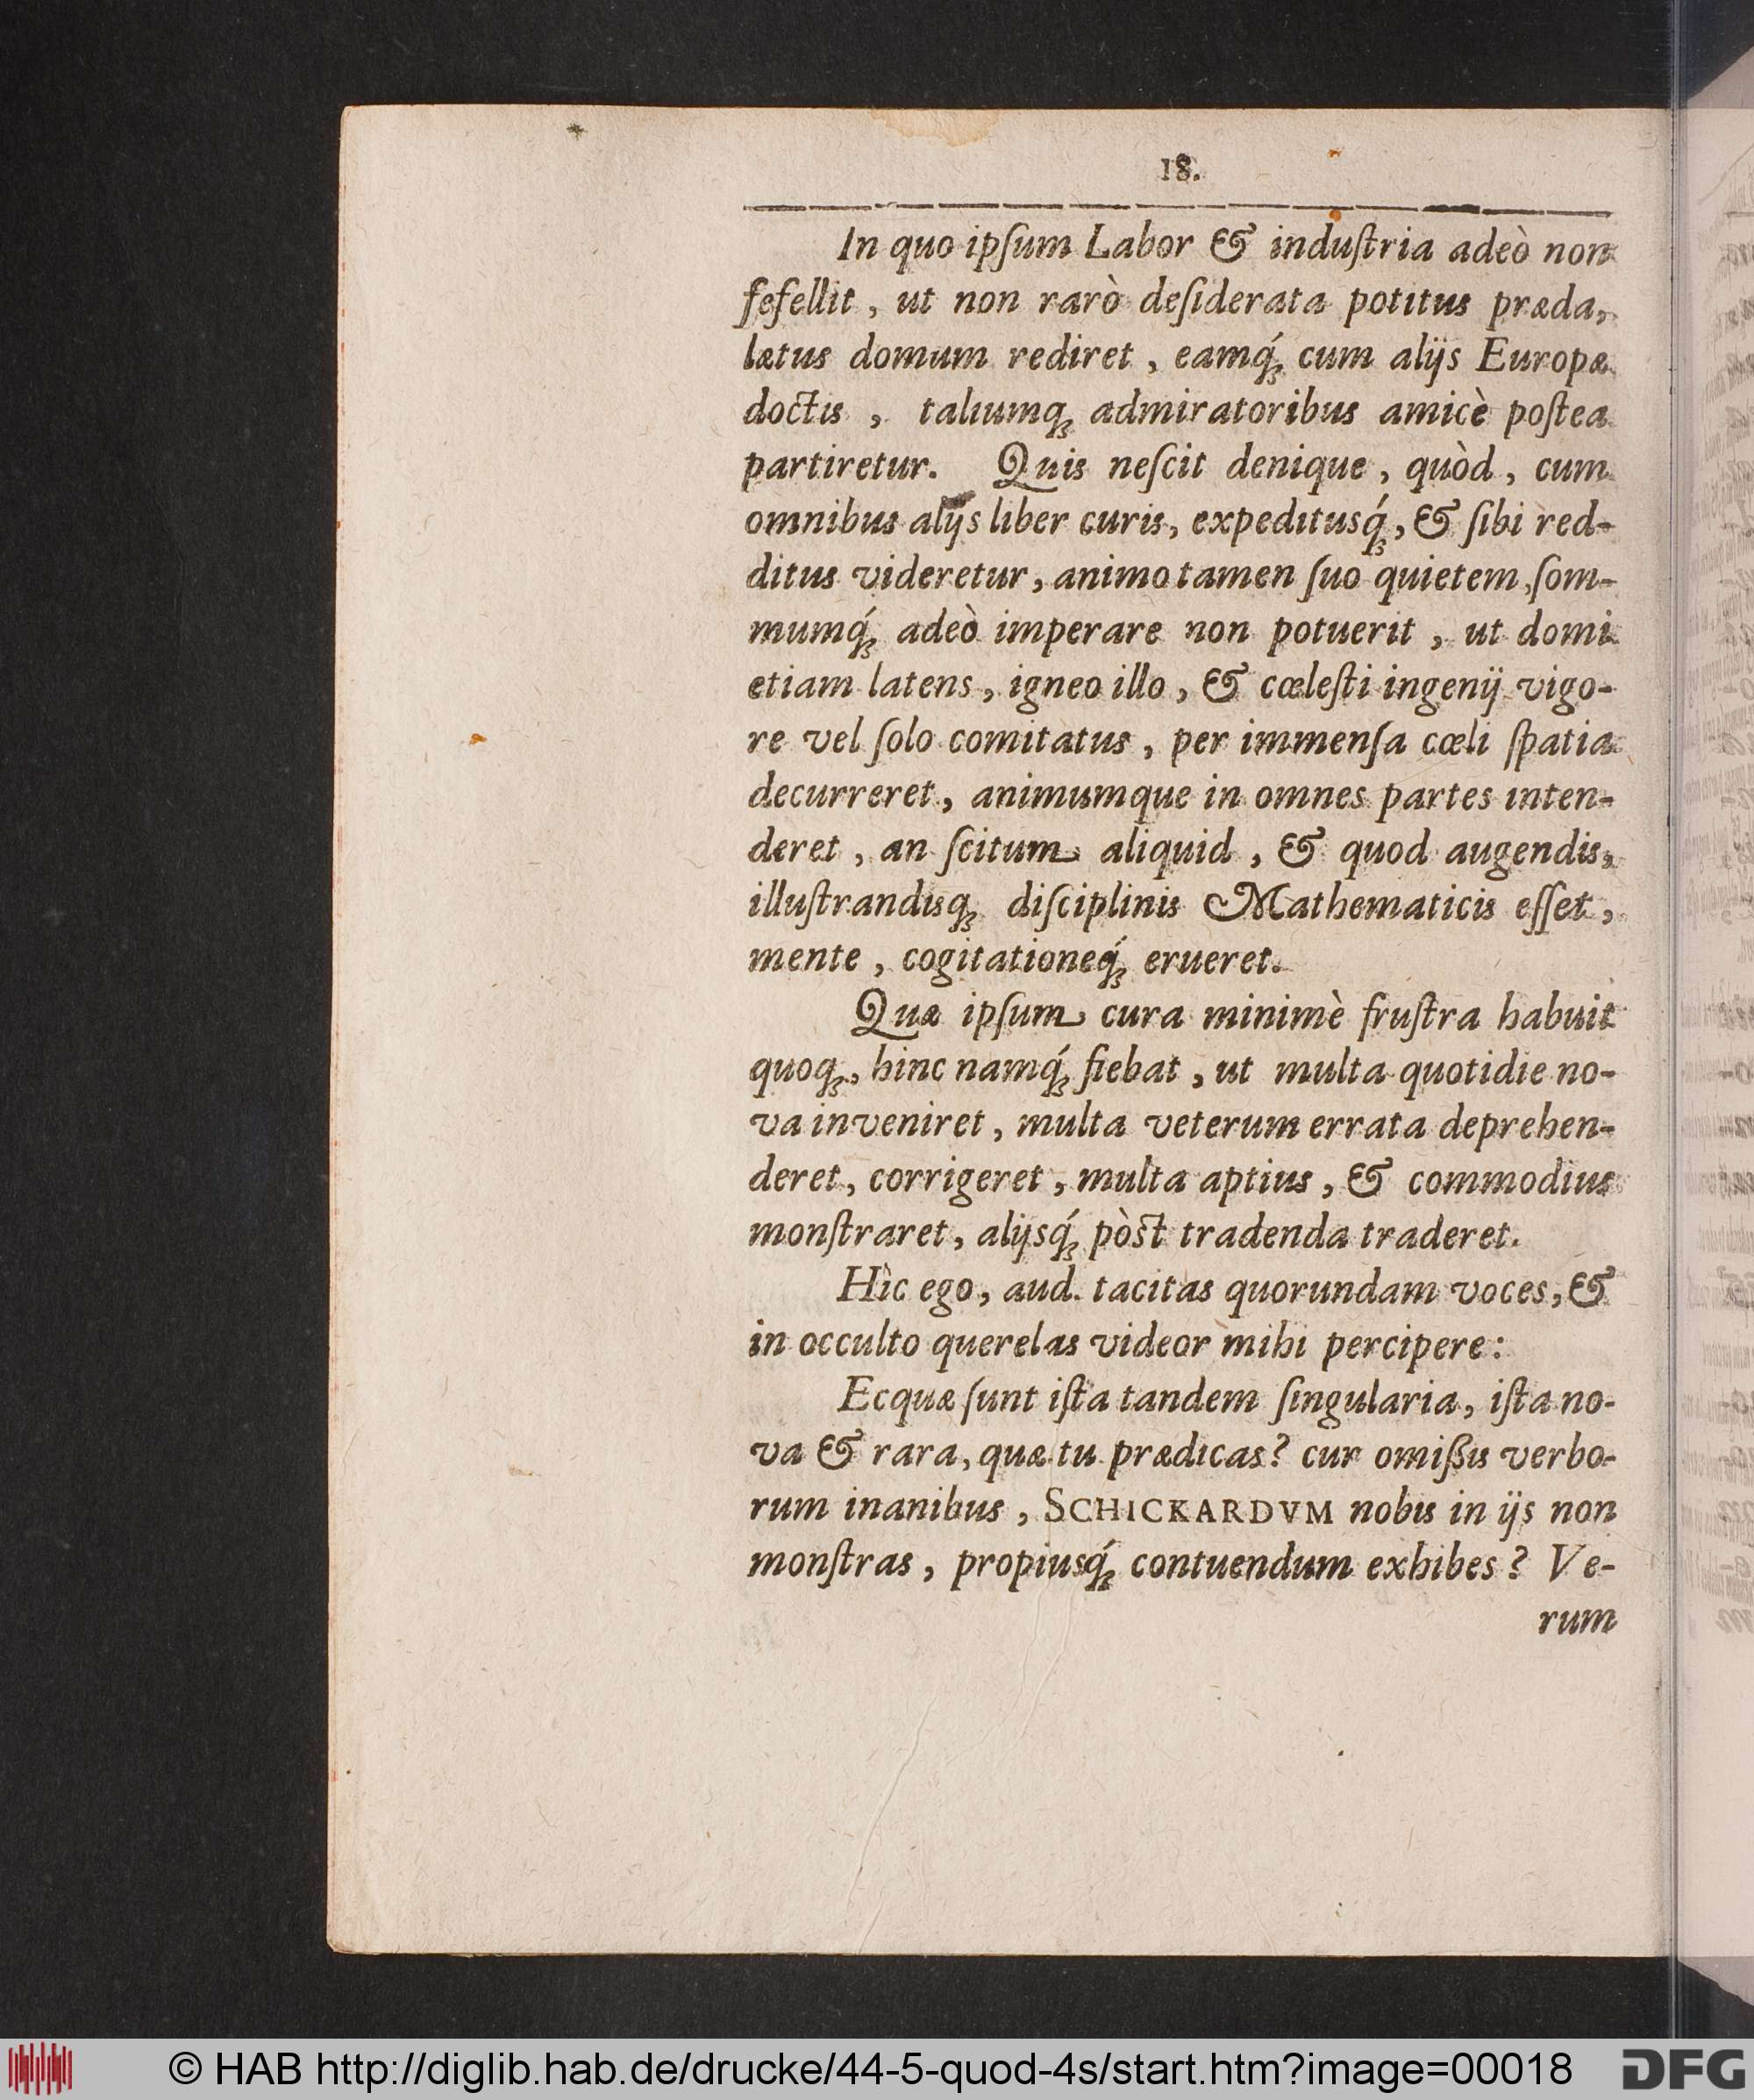 18.
In quo ipſum Labor & induſtria adeò non
fefellit, ut non rarò deſiderata potitus præda,
lætus domum rediret, eamq́ꝫ cum alijs Europæ
doctis, taliumqꝫ admiratoribus amicè poſtea
partiretur. Quis neſcit denique, quòd, cum
omnibus alijs liber curis, expeditusq́ꝫ, & ſibi red-
ditus videretur, animo tamen ſuo quietem, ſom-
mumq́ꝫ adeò imperare non potuerit, ut domi
etiam latens, igneo illo, & cœleſti ingenij vigo-
re vel ſolo comitatus, per immenſa cœli ſpatia
decurreret, animumque in omnes partes inten-
deret, an ſcitum aliquid, & quod augendis,
illuſtrandisqꝫ diſciplinis Mathematicis eſſet,
mente, cogitationeq́ꝫ erueret.
Quæ ipſum cura minimè fruſtra habuit
quoqꝫ, hinc namq́ꝫ fiebat, ut multa quotidie no-
va inveniret, multa veterum errata deprehen-
deret, corrigeret, multa aptius, & commodius
monſtraret, alijsq́ꝫ pòst tradenda traderet.
Hìc ego, aud. tacitas quorundam voces, &
in occulto querelas videor mihi percipere:
Ecquæ ſunt iſta tandem ſingularia, iſta no-
va & rara, quæ tu prædicas? cur omißis verbo-
rum inanibus, SCHICKARDVM nobis in ijs non
monſtras, propiusq́ꝫ contuendum exhibes? Ve-
rum
© HAB http://diglib.hab.de/drucke/44-5-quod-4s/start.htm?image=00018
DFG